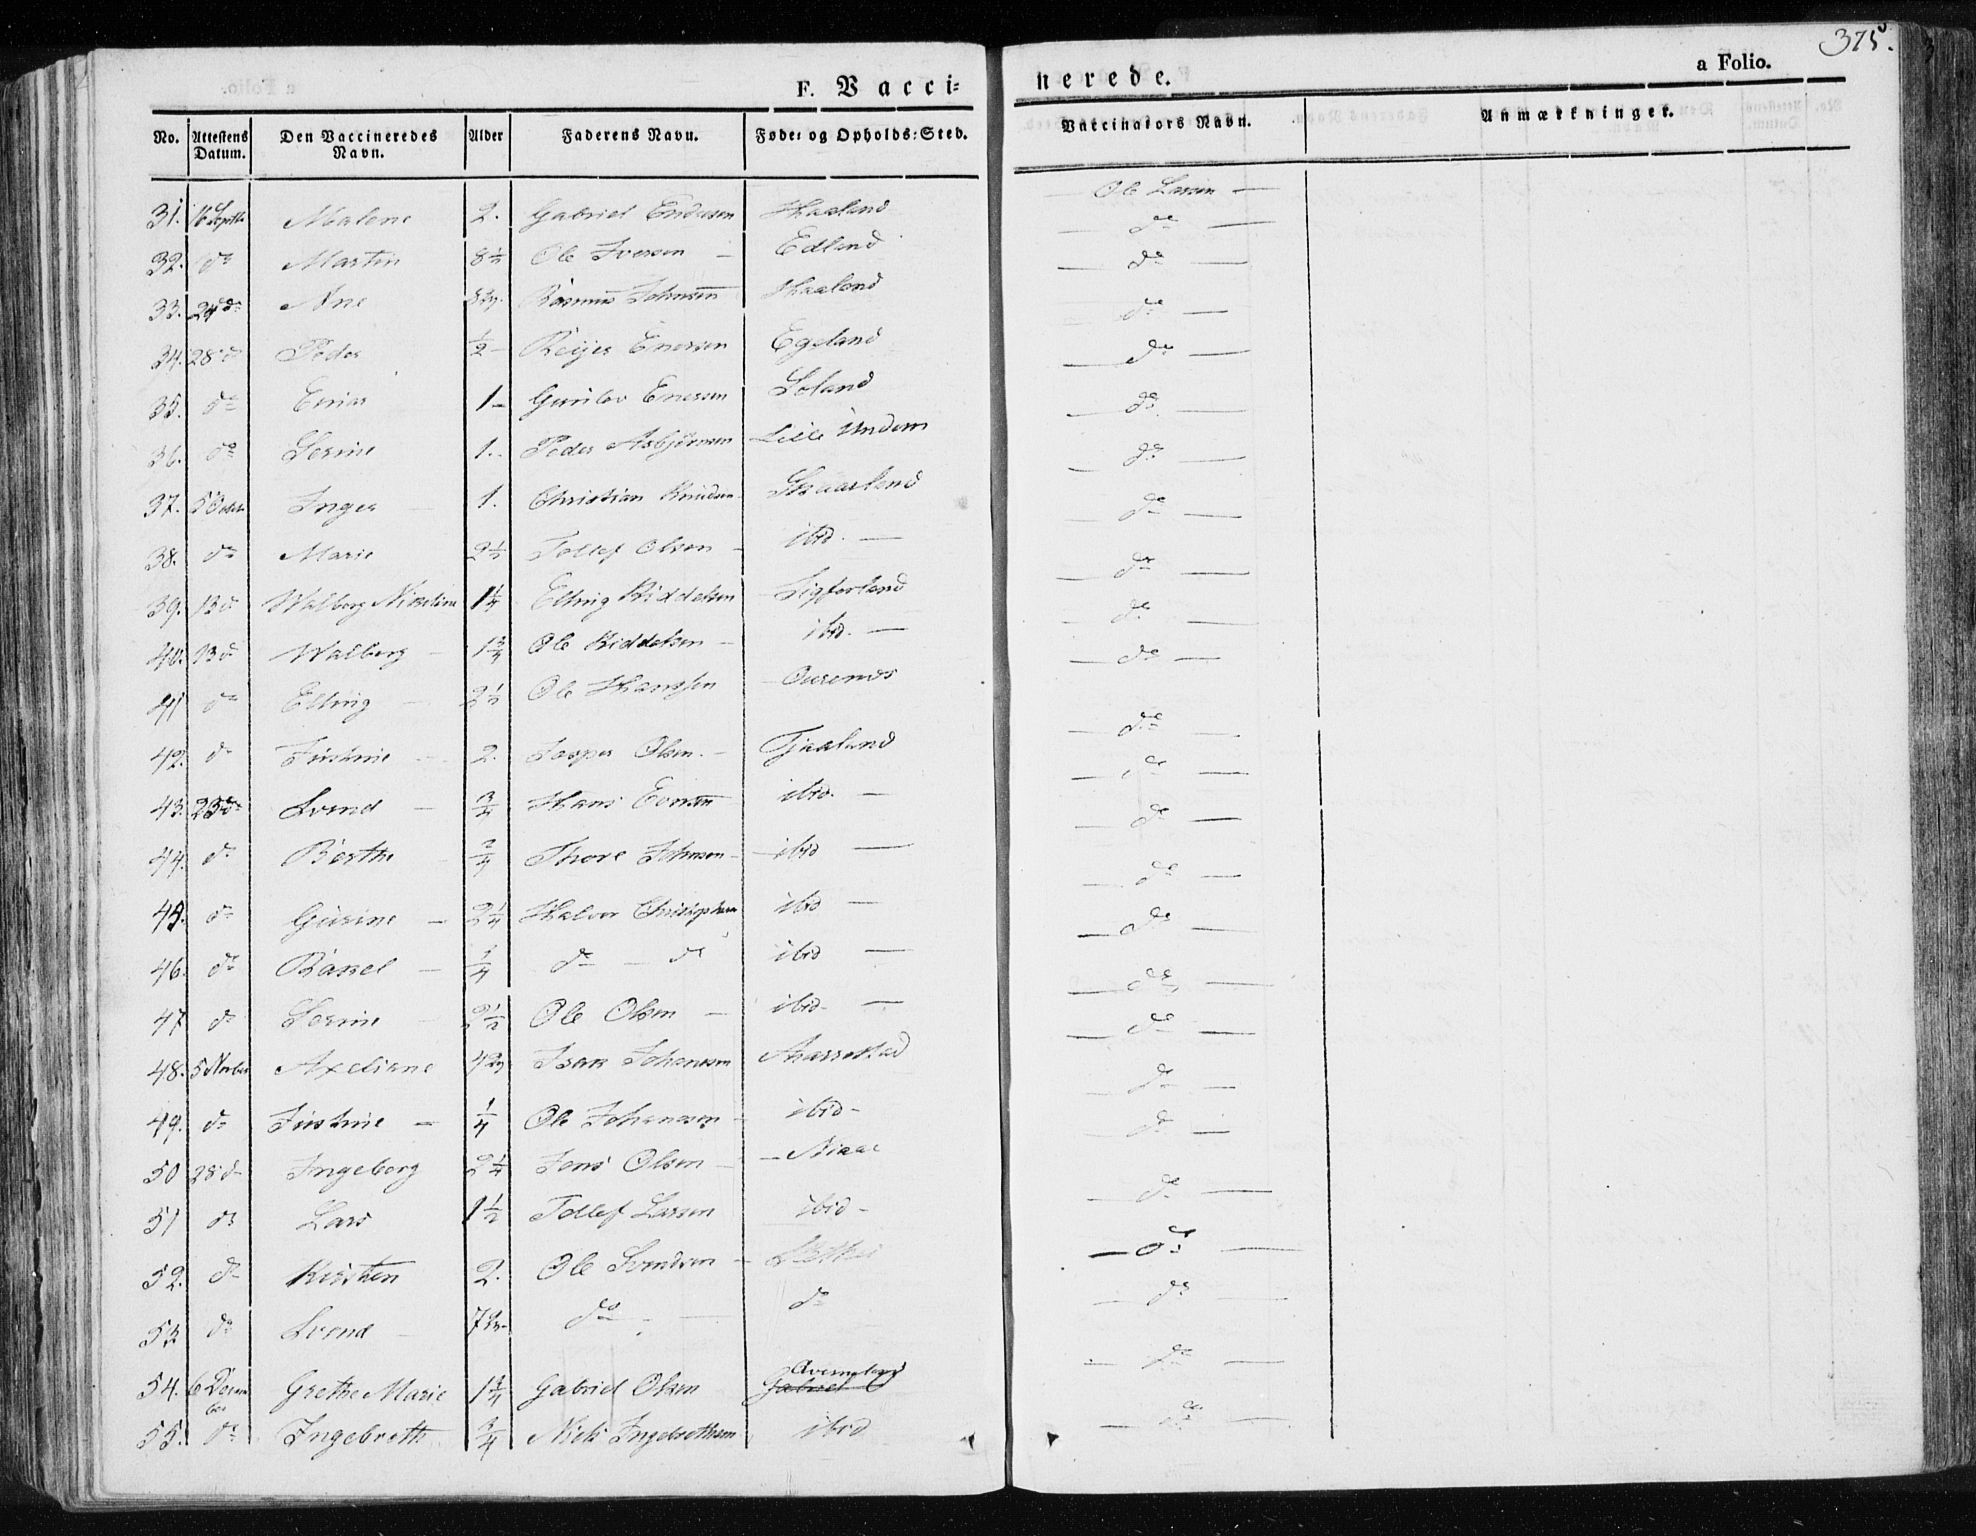 375.
F. Vacci-
nerede.
a Folio.
No. Attestens Datum. Den Vaccineredes Navn. Alder Faderens Navn. Føde- og Opholds-Sted. Vaccinators Navn. Anmærkninger.
31. 16 Septb Malene 2. Gabriel Endresen Haaland Ole Larsen —
32. do Martin 8½ Ole Iversen — Edland — do —
33. 24 do Ane Rasmus Johnsen Haaland — do —
34. 28 do Peder ½ - Reijer Enersen Egeland do —
35. do 1 - Gunlov Enersen Soland — do —
36. do Serine 1. Peder Asbjørnsen Lille Undem — do —
37. 5 Octob Inger 1. Christian Knudsen Skaarland — do —
38. do Marie 2½ Tollef Olsen — ibid. — — do —
39. 13 d Walborg 1¼ Elling Kiddelsen Sigforland — do —
40. 13 d Walborg 1¾ Ole Kiddelsen — ibid. — — do —
41 do Elling — 2½ Ole Hanssen — do —
42. do Jirstine — 2. Jesper Olsen. — Tjaaland — do —
43. 23 do Svend — ¾ Hans Evensen ibid. — — do —
44. do Berthe ¾ Thore Johnsen — ibid — — do —
45. do Gurine — 2¼ Halvor Christophersen ibid — — do —
46. do Rassel — ¾ do — do ibid — — do —
47 do Serine 2½ Ole Olsen — ibid. — — do —
48. 5 Novbr Axeliane Isak Johannesen Aarrestad — do —
49. do Jirstine — ¼ Ole Johannesen — ibid - — do —
50 28 d Ingeborg 2¼ Jens Olsen — — do —
51 do Lars 1½ Tollef Larsen ibid - — do —
52. do Kirsten 2. Ole Svendsen — — do —
53 do Svend do — do — do —
54. 6 December Grethe Marie 1¾ Gabriel Olsen Gabriel — do —
55. do Ingebreth ¾ Niels Ingebrethsen ibid — do —